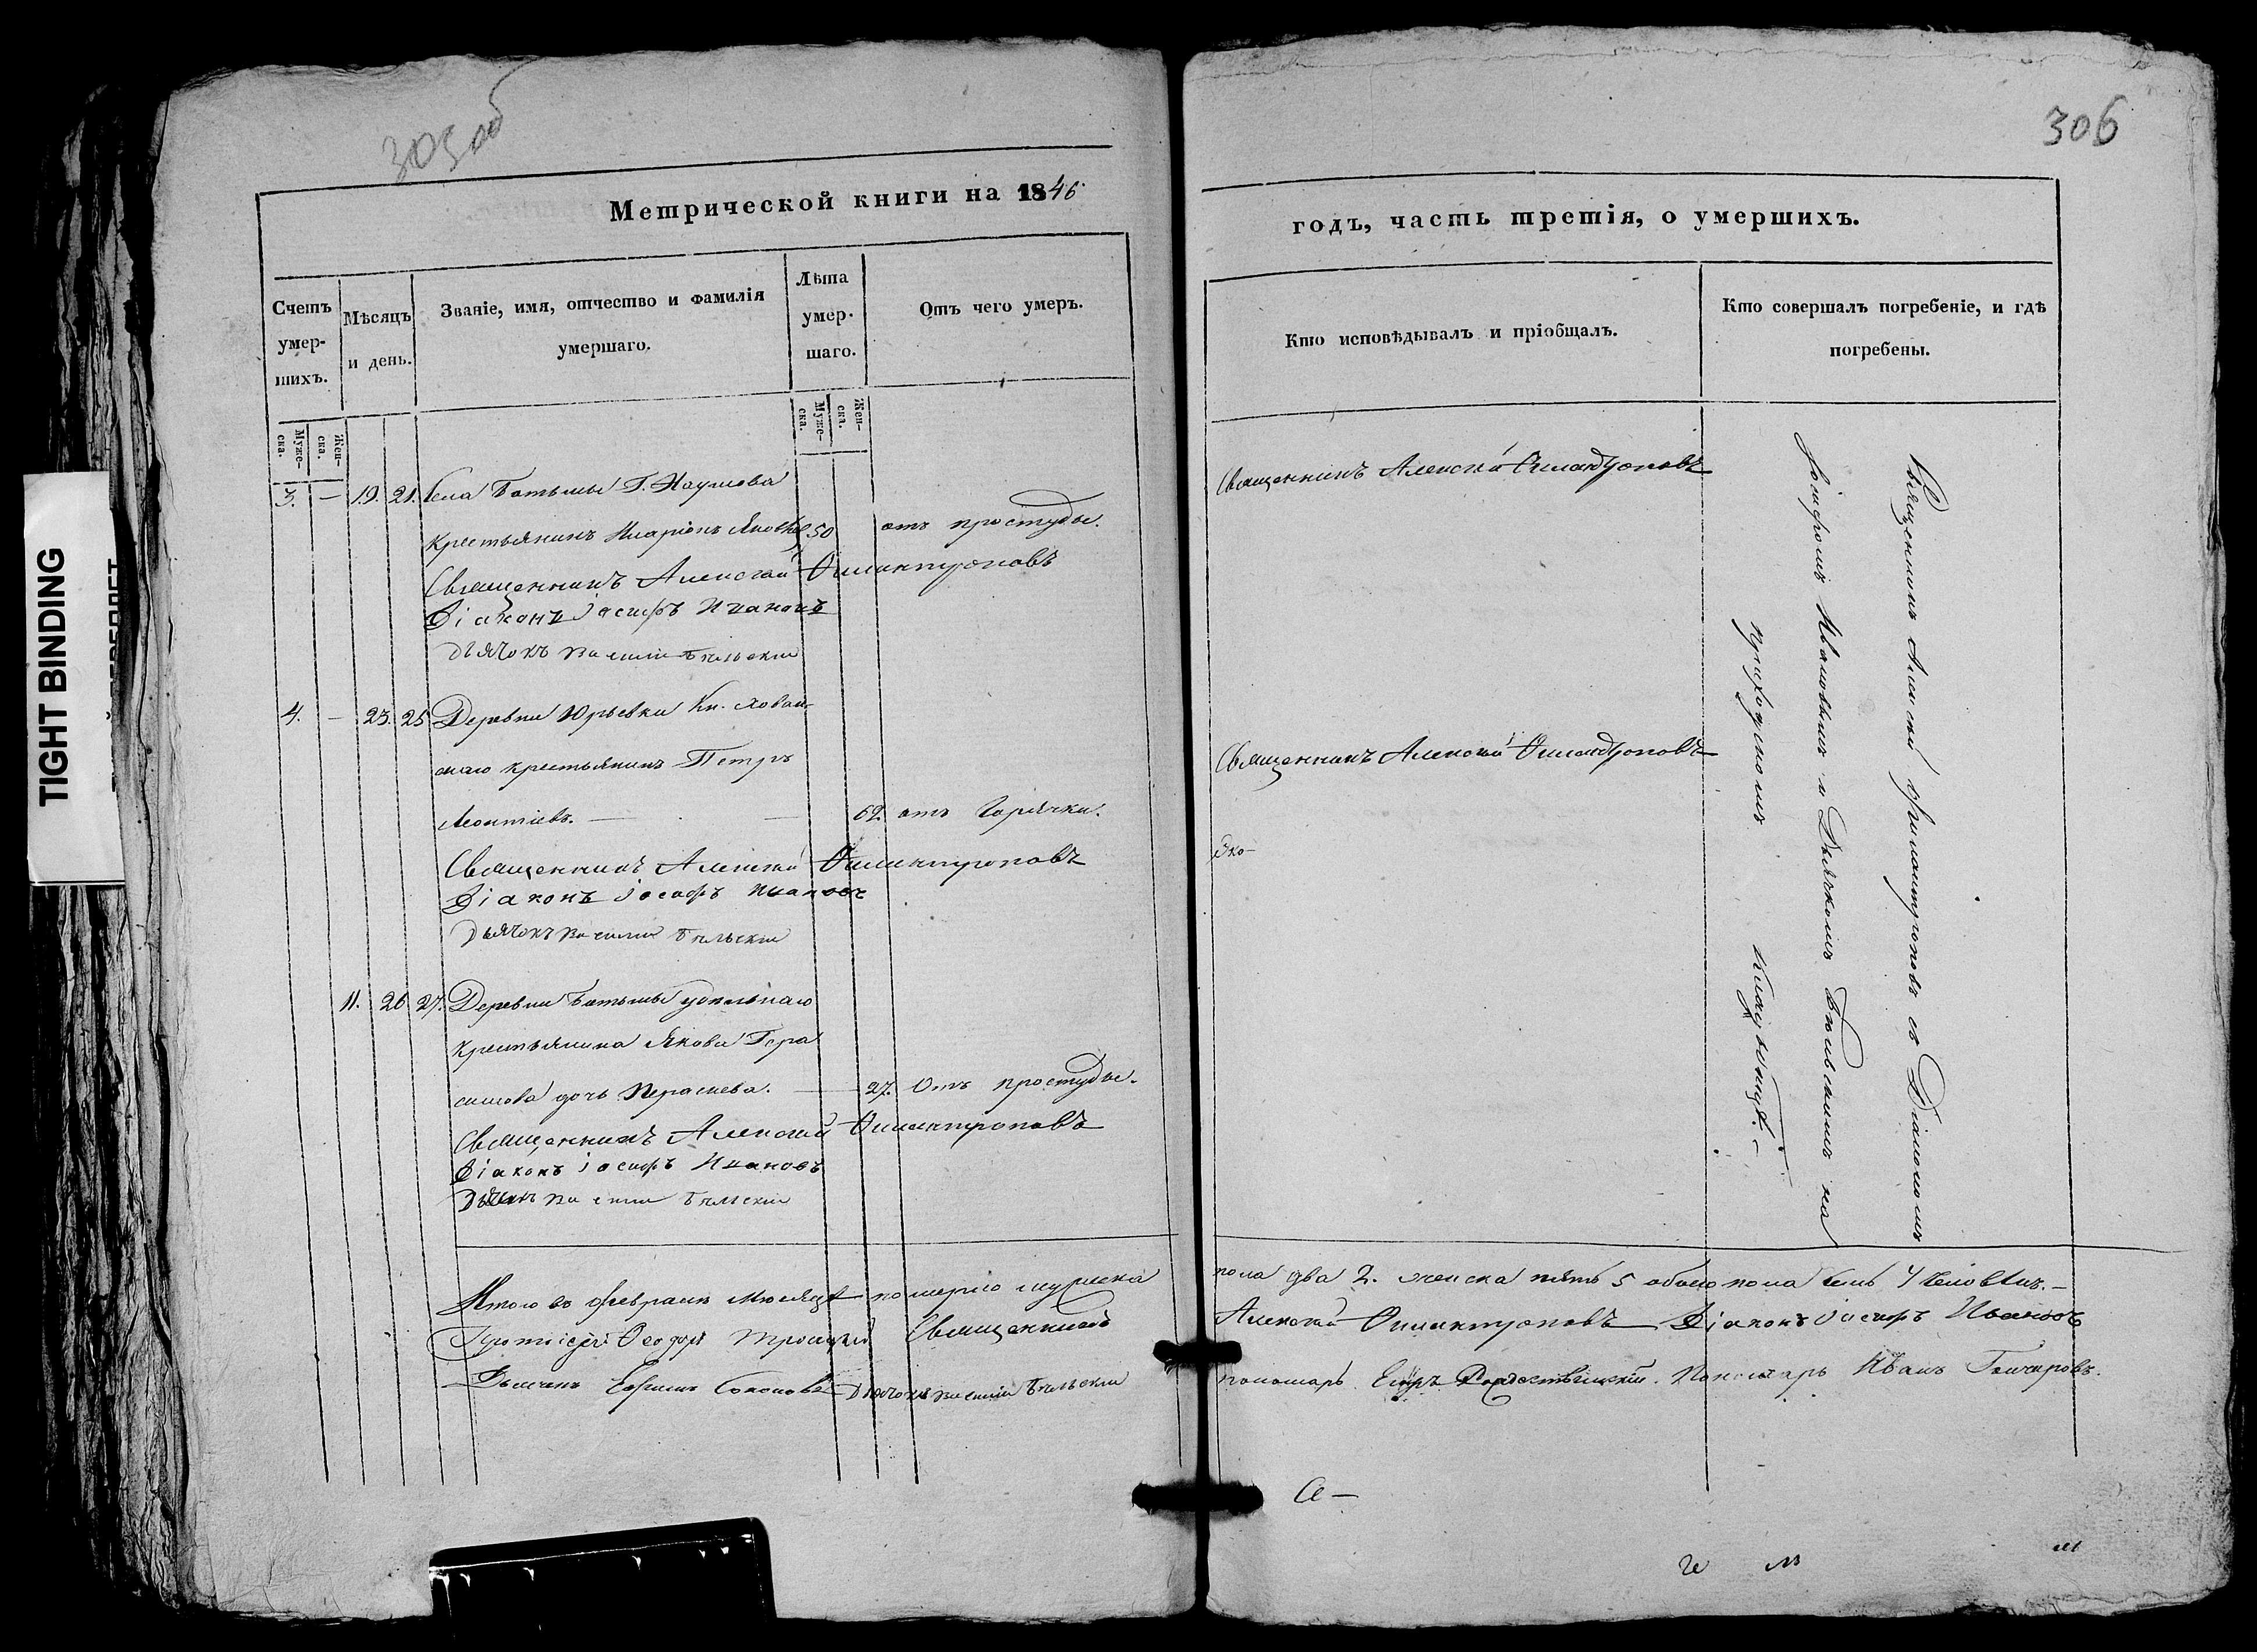 305 об
306
Метрической книги на 1846
годъ, часть третія, о умершихъ.
Счетъ умер-шихъ.
Мѣсяцъ и день.
Званіе, имя, отчество и фамилія умершаго.
Лѣта умер-шаго.
Отъ чего умеръ.
Кто исповѣдывалъ и пріобщалъ.
Кто совершалъ погребеніе, и гдѣ погребены.
Муже-ска.
Жен-ска.
Муже-ска.
Жен-ска.
3. — 19. 21. Села Батьмы Г. Наумова
крестьянинъ Иларіонъ Яковлев 50 отъ простуды.
Священникъ Алексѣй Филантроповъ
Діаконъ Іосифъ Ивановъ
Дьячокъ Василій Бѣльскій
Священникъ Алексѣй Филантроповъ
4. — 23. 25 Деревни Юрьевки Кн. Хован-
скаго крестьянинъ Петръ
Леонтіевъ. — — 62. отъ горячки.
Священникъ Алексѣй Филантроповъ
Діаконъ Іосифъ Ивановъ
Дьячокъ Василій Бѣльскій
Священникъ Алексѣй Филантроповъ
11. 26 27. Деревни Батьмы удѣльнаго
крестьянина Якова Гера
симова дочь — 27. Отъ простуды.
Священникъ Алексѣй Филантроповъ
Діаконъ Іосифъ Ивановъ
Дьячокъ Василій Бѣльскій
Священникъ Алексѣй Филантроповъ съ Діакономъ
Іосифомъ Ивановымъ и Дьячкомъ Бѣльскимъ на
приходскомъ кладбищѣ. —
Итого въ Февралѣ мѣсяцѣ померло мужеска
пола два 2. женска пять 5 обоего пола семь 7 человѣкъ. —
Протоіерей Ѳеодоръ Троицкій Священникъ
Алексѣй Филантроповъ Діаконъ Іосифъ Ивановъ
Дьячокъ Ефимъ Соколовъ Дьячокъ Василій Бѣльскій
пономарь Егоръ Рождественскій. Пономарь Иванъ Гончаровъ.
TIGHT BINDING